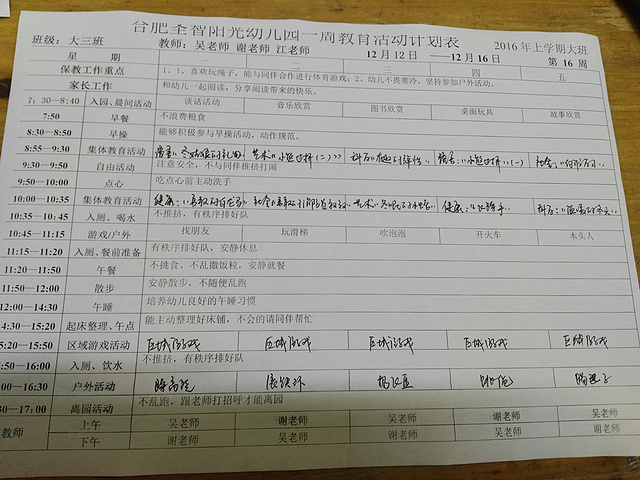 合肥全智阳光幼儿园一周教育活动计划表
班级：大三班 教师：吴老师 谢老师 江老师 12月12日——12月16日 2016年上学期大班 第16周
星 期 一 二 三 四 五
保教工作重点 1、1、喜欢玩绳子，能与同伴合作进行体育游戏；2、幼儿不畏寒冷，坚持参加户外活动。
家长工作 和幼儿一起阅读，分享阅读带来的快乐。
7：30—8:40 入园、晨间活动 谈话活动 音乐欣赏 图书欣赏 桌面玩具 故事欣赏
7:50 早餐 不浪费粮食
8:30—8:50 早操 能够积极参与早操活动，动作规范。
8:55—9:30 集体教育活动
9:30—9:50 自由活动 注意安全，不与同伴推挤打闹
9:50—10:00 点心 吃点心前主动洗手
10:00—10:35 集体教育活动 健康： 社会 艺术： 健康： 科学：
10:35—10:45 入厕、喝水 不推挤，有秩序排好队
10:45—11:15 游戏/户外 找朋友 玩滑梯 吹泡泡 开火车 木头人
11:15—11:20 入厕、餐前准备 有秩序排好队，安静休息
11:20—11:50 午餐 不挑食、不乱撒饭粒，安静就餐
11:50—12:00 散步 安静散步，不随便乱跑
12:00—14:30 午睡 培养幼儿良好的午睡习惯
4:30—15:20 起床整理、午点 能主动整理好床铺，不会的请同伴帮忙
5:20—15:50 区域游戏活动 区域游戏 区域游戏 区域游戏 区域游戏 区域游戏
:50—16:00 入厕、饮水 不推挤，有秩序排好队
00—16:30 户外活动
30—17:00 离园活动 不乱跑，跟老师打招呼才能离园
教师 上午 吴老师 谢老师 吴老师 谢老师 吴老师
下午 谢老师 吴老师 谢老师 吴老师 谢老师